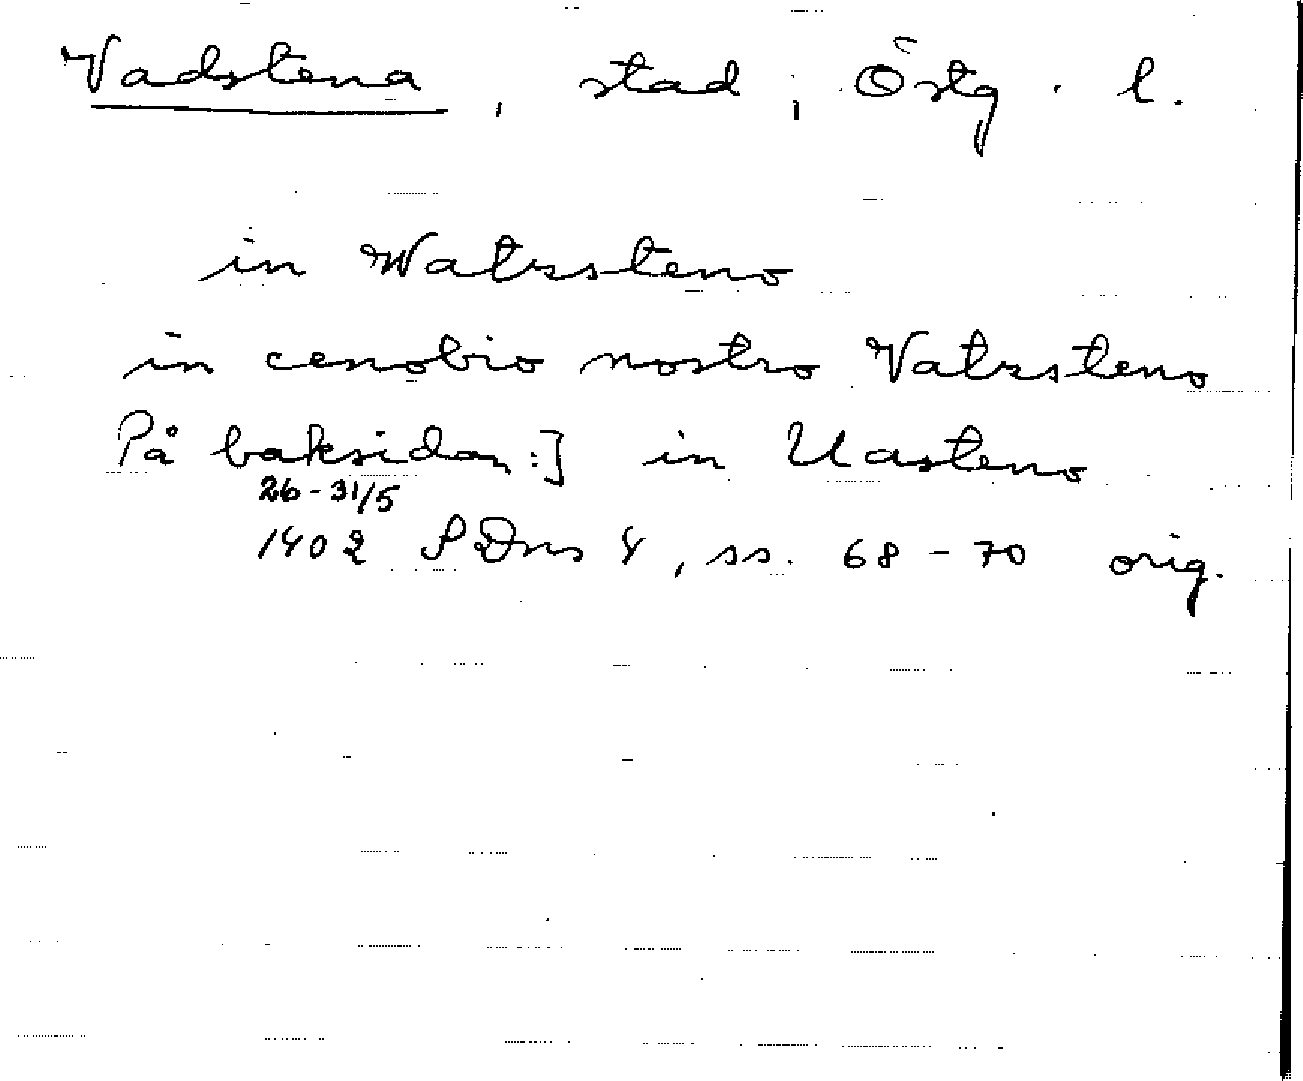 Vadstena, stad, Östg. l.
in Watzsteno
in cenobio nostro Vatzsteno
På baksidan:] in Uasteno
26-31/5
1402 SDns 4, ss. 68-70 orig.